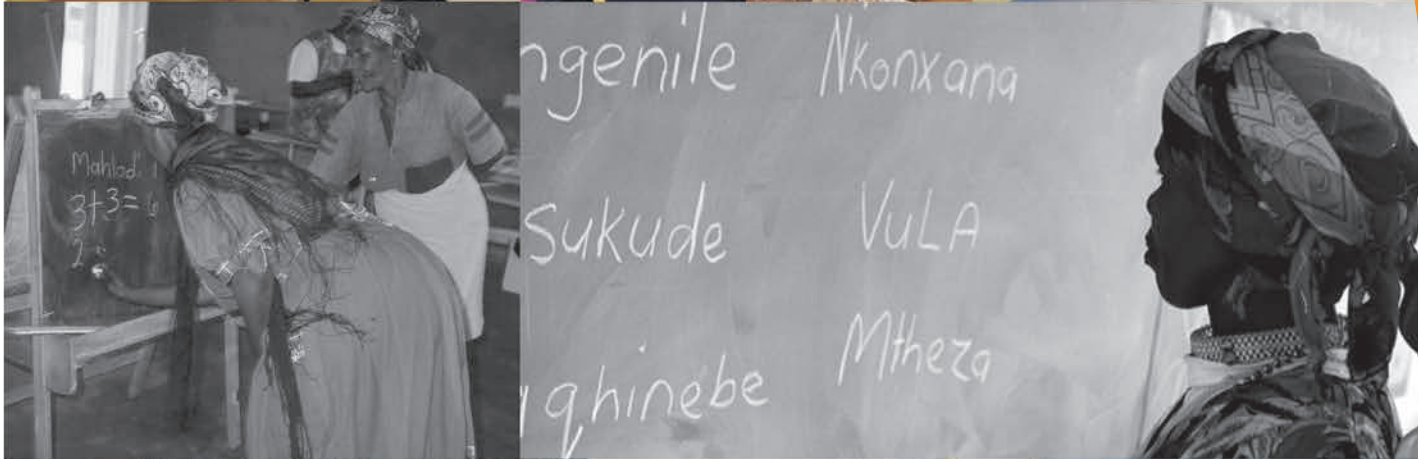 Mahlodi
3+3= 6
2
ngenile Nkonxana
Sukude VuLA
qhinebe Mtheza